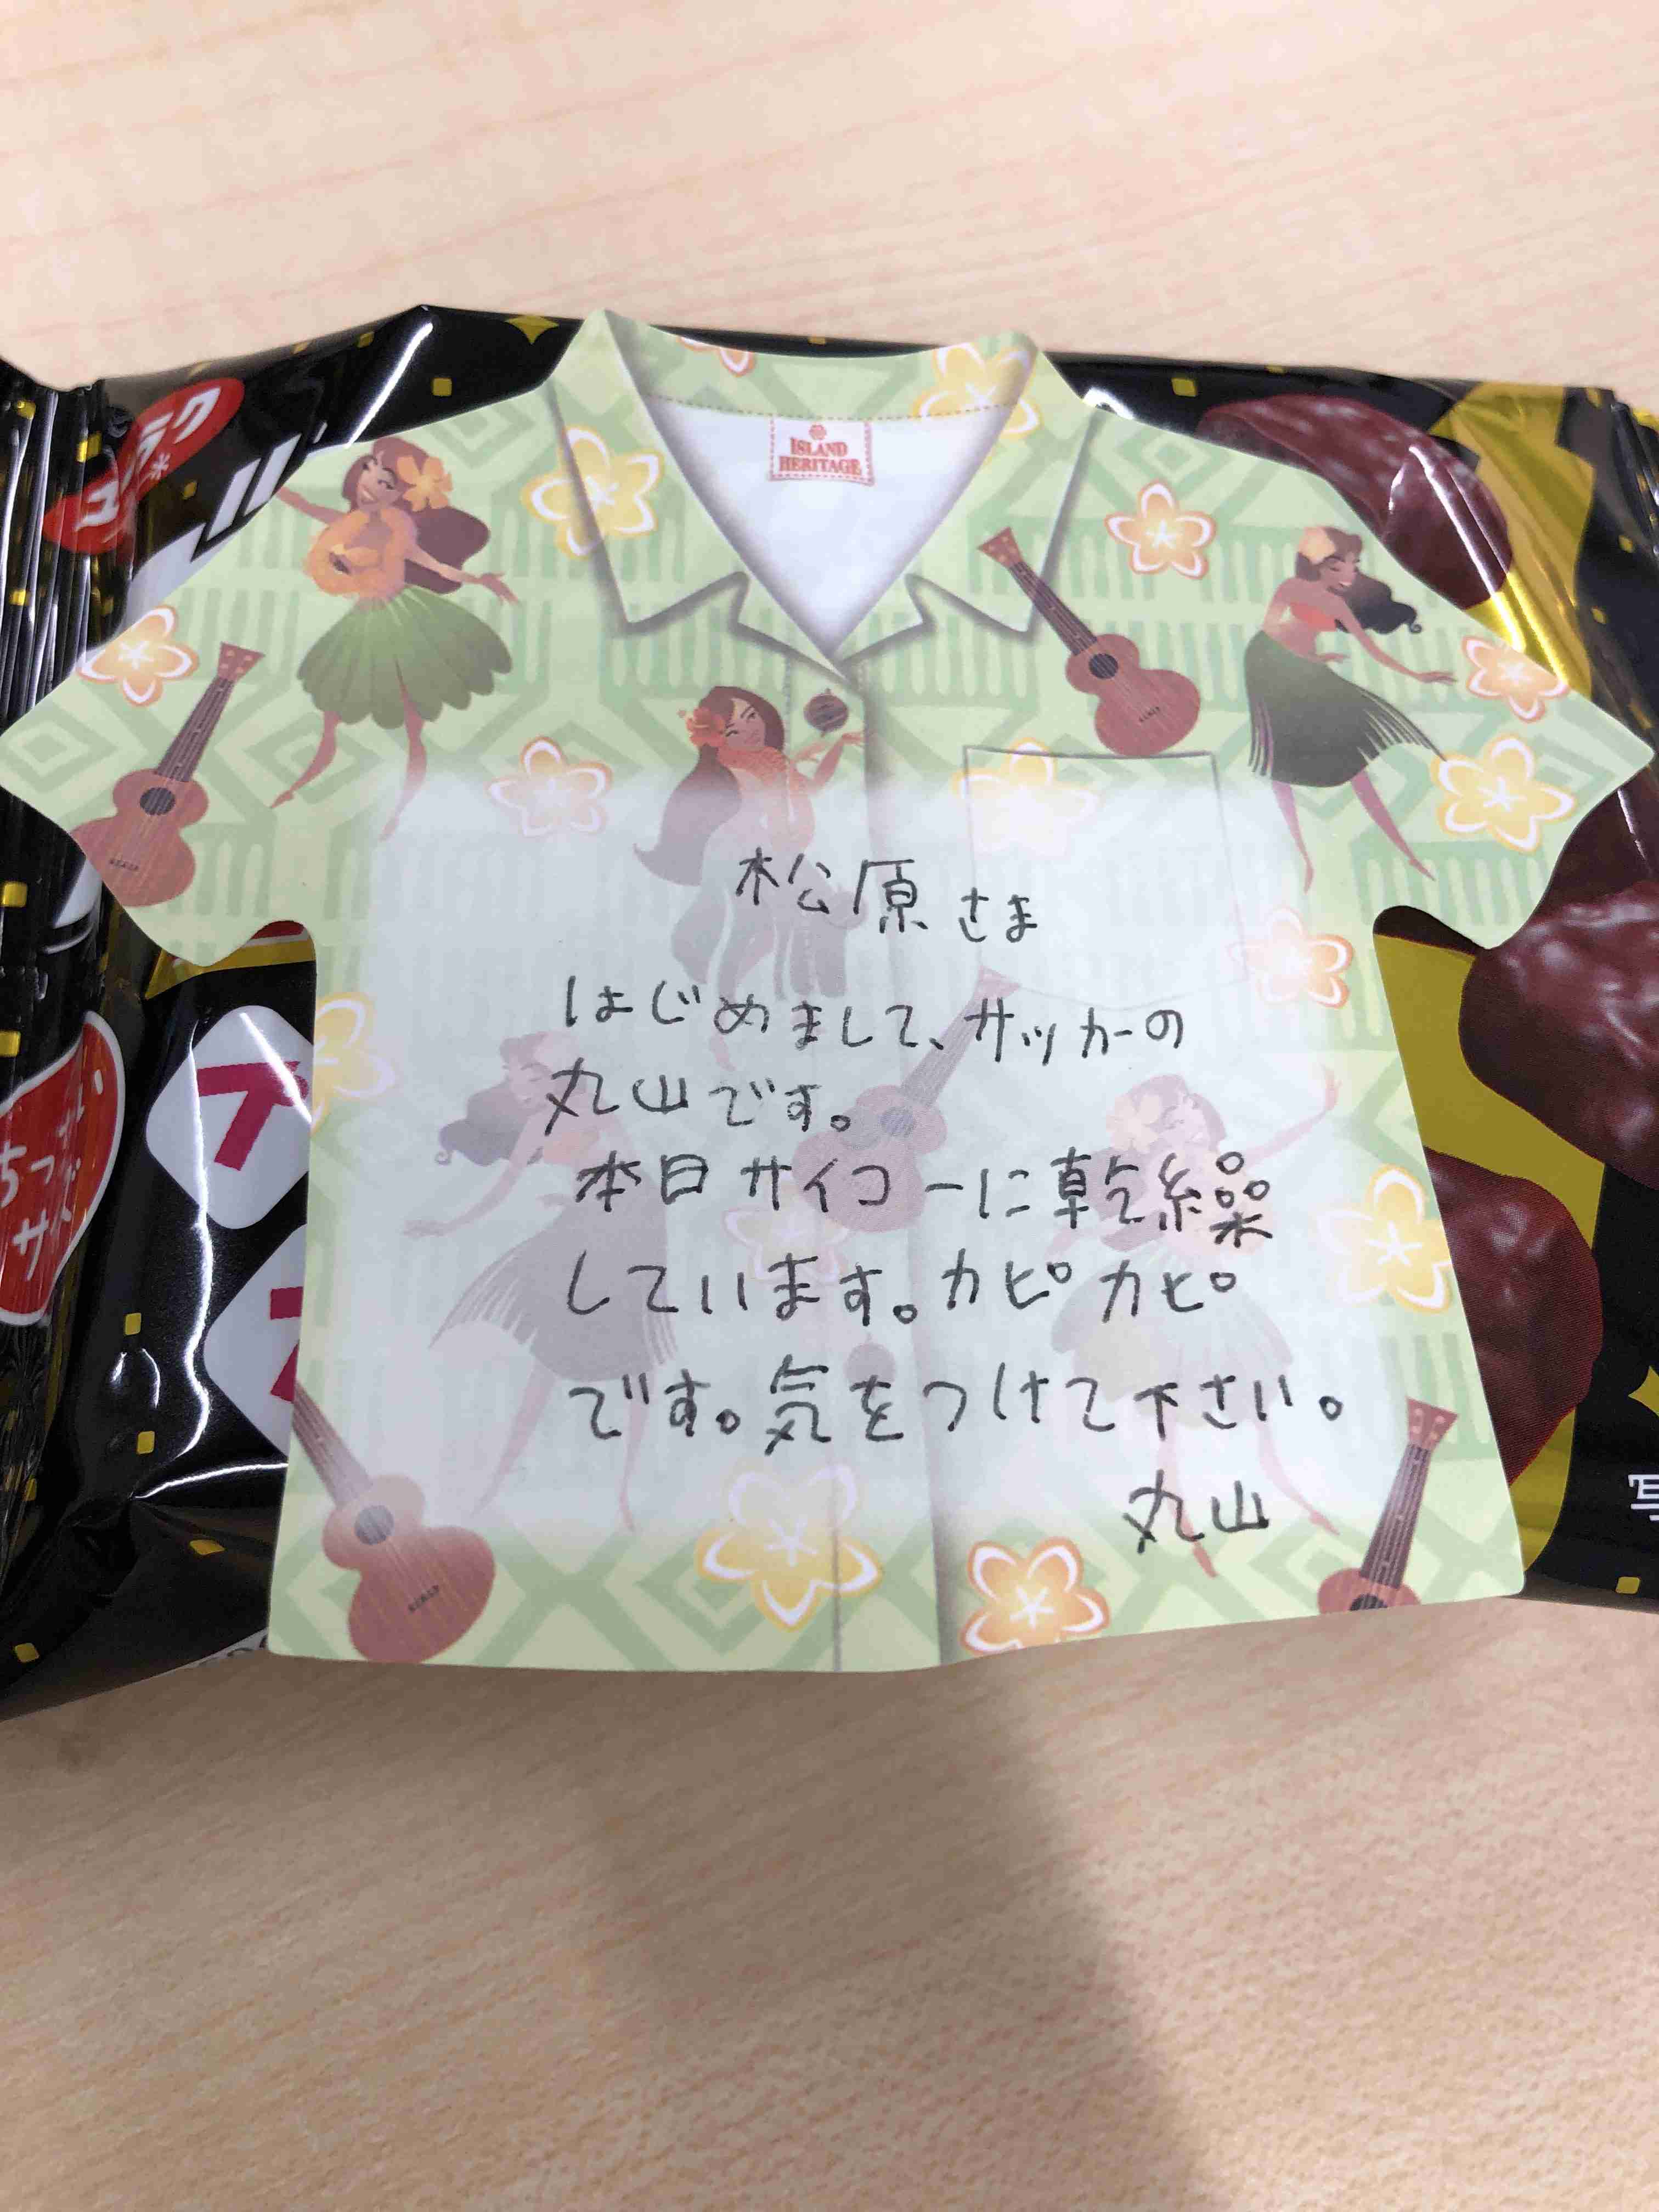 ユウラク
ISLAND
HERITAGE
松原さま
はじめまして、サッカーの
丸山です。
本日サイコーに乾繰
しています。カピカピ
です。気をつけて下さい。
丸山